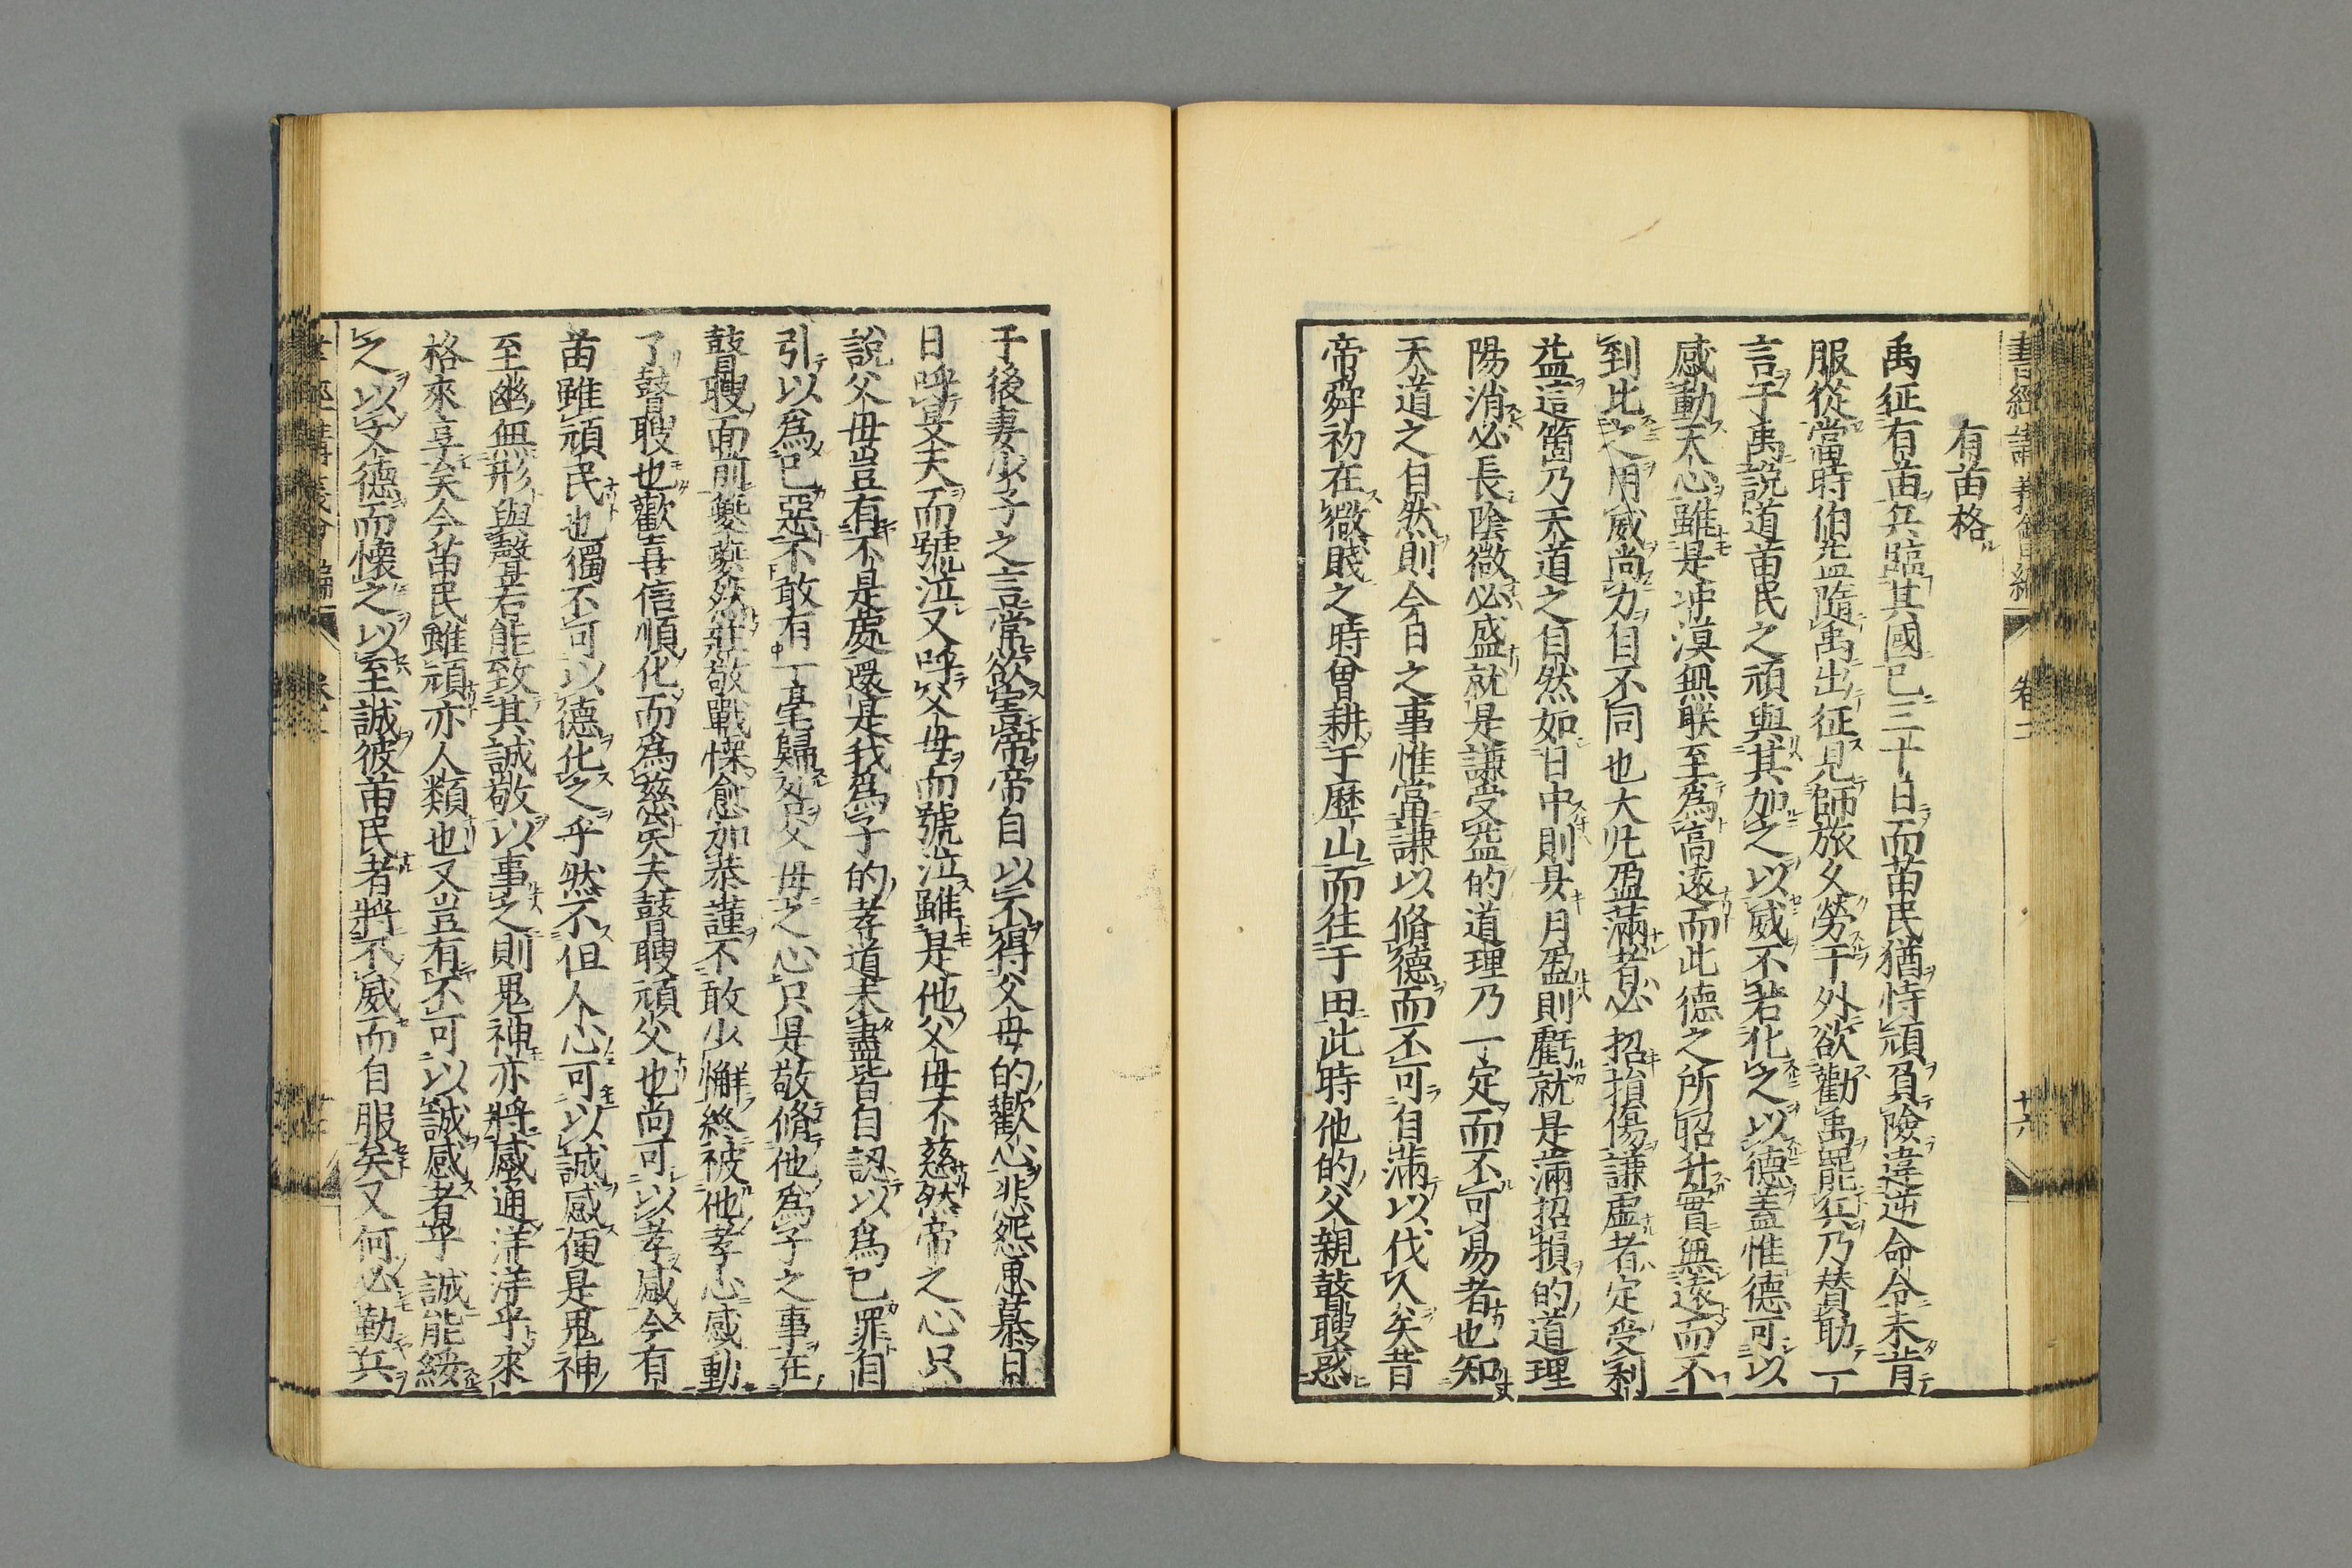 書經講義會編 卷二 十六
有苗格
禹征有苗兵臨其國已三十日而苗民猶恃頑負險違逆命令未肯
服從當時伯益隨禹出征見師旅久勞于外欲勸禹罷兵乃賛助一
言于禹說道苗民之頑與其加之以威不若化之以德蓋惟德可以
感動天心雖是冲漠無朕至爲高遠而此德之所昭升實無遠而不
到比之用威尚力自不同也大凡盈滿者必招損傷謙虛者定受利
益這箇乃天道之自然如日中則昃月盈則虧就是滿招損的道理
陽消必長陰微必盛就是謙受益的道理乃一定而不可易者也知
天道之自然則今日之事惟當謙以脩德而不可自滿以伐人矣昔
帝舜初在微賤之時曾耕于歷山而往于田此時他的父親瞽瞍惑
于後妻少子之言常欲害帝帝自以不得父母的歡心悲怨思慕日
日呼旻天而號泣又呼父母而號泣雖是他父母不慈然帝之心只
說父母豈有不是處還是我爲子的孝道未盡皆自認以爲己罪自
引以爲己惡不敢有一毫歸咎父母之心只是敬脩他爲子之事在
瞽瞍面前夔夔然莊敬戰慄愈加恭謹不敢少懈終被他孝心感動
了瞽瞍也歡喜信順化而爲慈矣夫瞽瞍頑父也尚可以孝感今有
苗雖頑民也獨不可以德化之乎然不但人心可以誠感便是鬼神
至幽無形與聲若能致其誠敬以事之則鬼神亦將感通洋洋乎來
格來享矣今苗民雖頑亦人類也又豈有不可以誠感者乎誠能綏
之以文德而懷之以至誠彼苗民者將不威而自服矣又何必勤兵